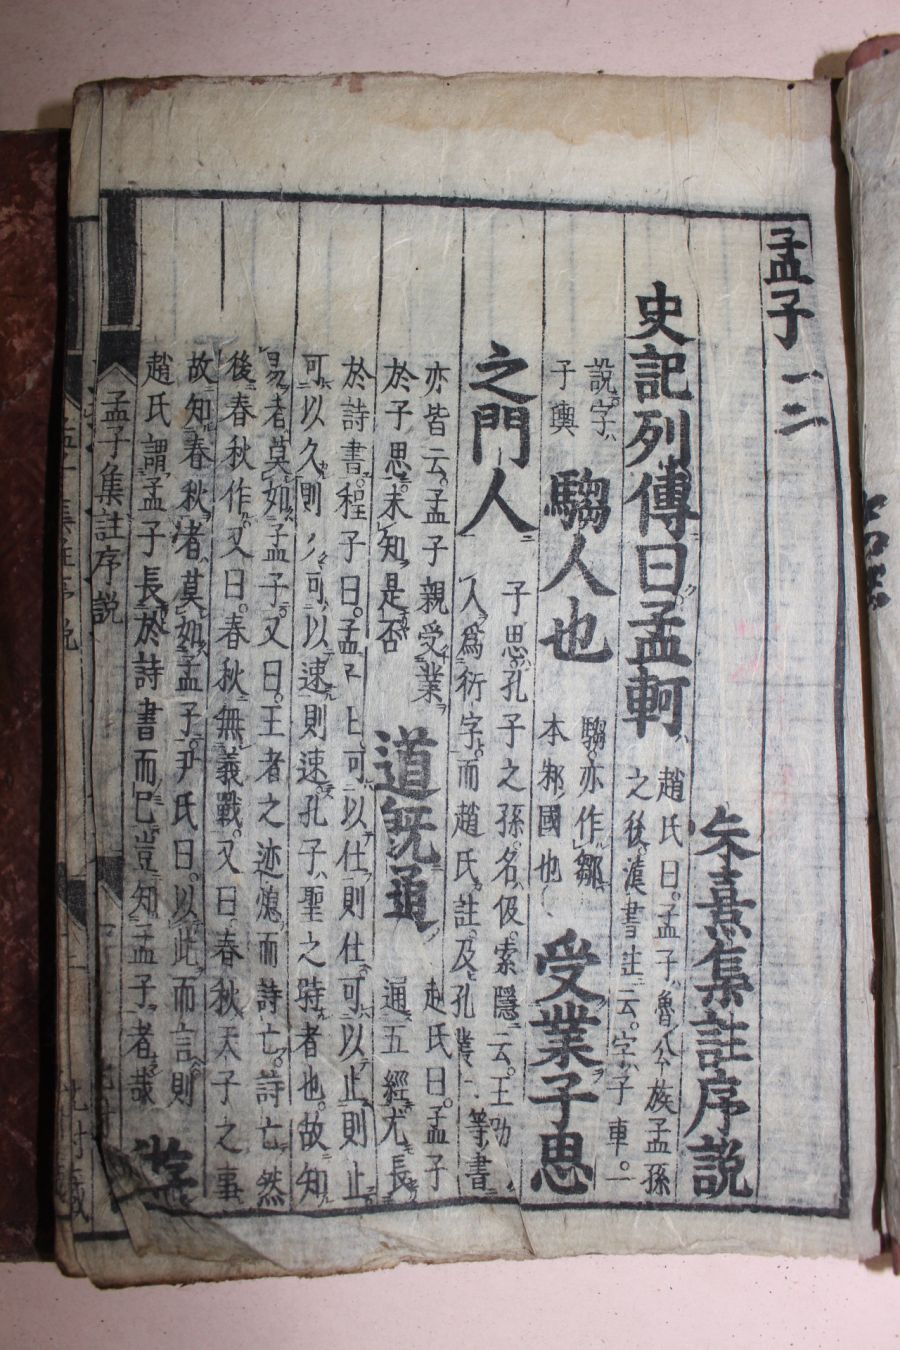 孟子 一二
朱熹集註序説
史記列傳曰孟軻
趙氏曰孟子魯公族孟孫
之後漢書註云字子車一
説字
子輿
騶人也
騶亦作鄒
本邾國也
受業子思
之門人
子思孔子之孫名伋索隱云王劭
人爲衍字而趙氏註及孔叢等書
亦皆云孟子親受業
於子思未知是否
道既通
趙氏曰孟子
通五經尤長
於詩書程子曰孟子曰可以仕則仕可以止則止
可以久則久可以速則速孔子聖之時者也故知
易者莫如孟子又曰王者之迹熄而詩亡詩亡然
後春秋作又曰春秋無義戰又曰春秋天子之事
故知春秋者莫如孟子尹氏曰以此而言則
趙氏謂孟子長於詩書而已豈知孟子者哉
遊
孟子集註序説